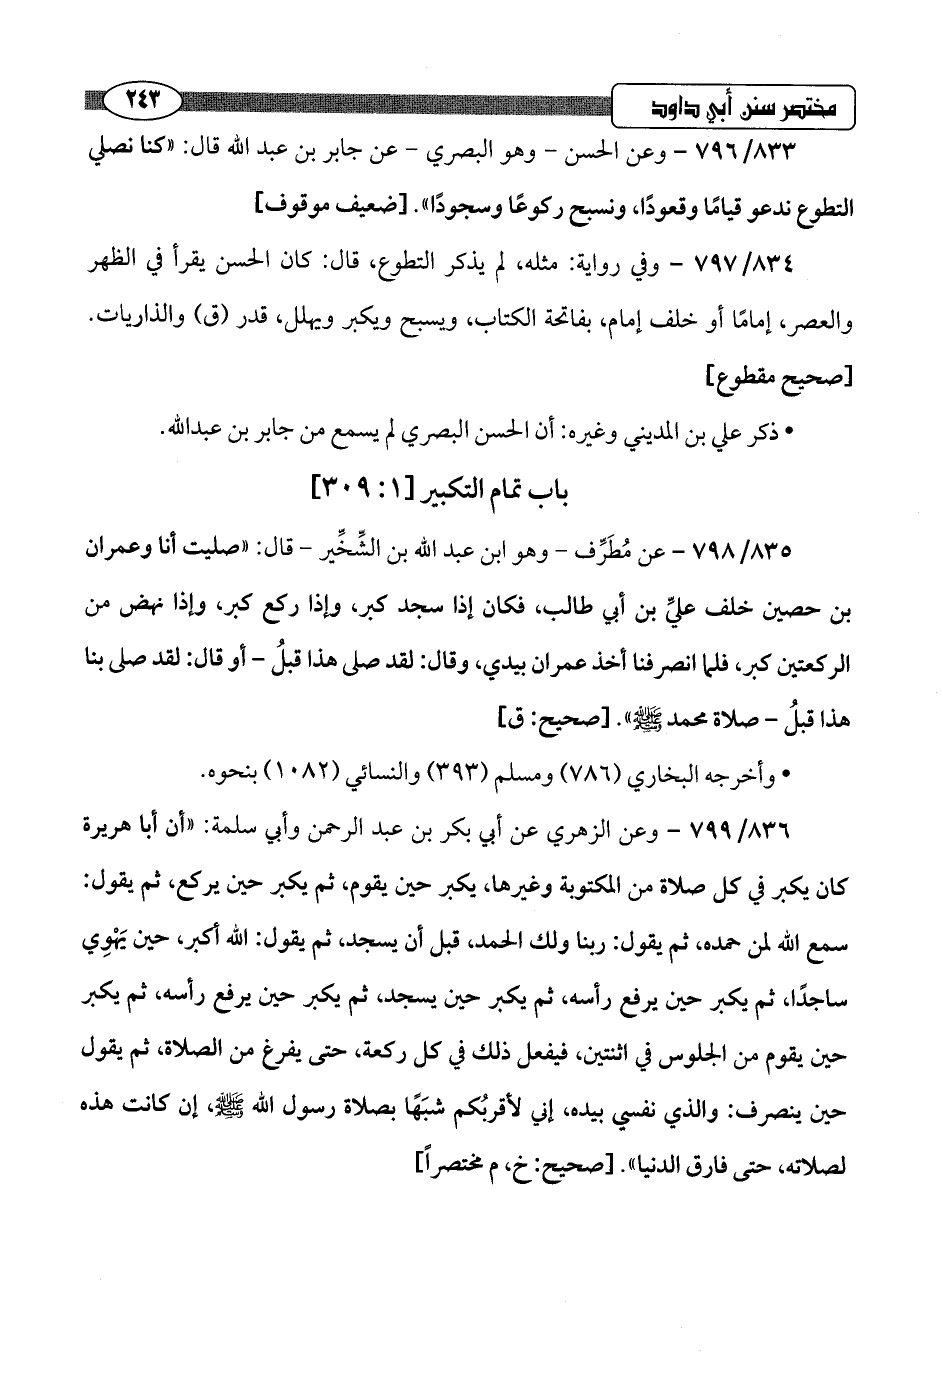 مختصر سنن أبي داود
٢٤٣
٧٩٦/٨٣٣ - وعن الحسن - وهو البصري - عن جابر بن عبد الله قال: «كنا نصلي
التطوع ندعو قيامًا وقعودًا، ونسبح ركوعًا وسجودًا». [ضعيف موقوف]
٧٩٧/٨٣٤ - وفي رواية: مثله، لم يذكر التطوع، قال: كان الحسن يقرأ في الظهر
والعصر، إمامًا أو خلف إمام، بفاتحة الكتاب، ويسبح ويكبر ويهلل، قدر (ق) والذاريات.
[صحيح مقطوع]
• ذكر علي بن المديني وغيره: أن الحسن البصري لم يسمع من جابر بن عبدالله.
باب تمام التكبير [١: ٣٠٩]
٧٩٨/٨٣٥ - عن مُطَرِّف - وهو ابن عبد الله بن الشِّخِّير - قال: «صليت أنا وعمران
بن حصين خلف عليِّ بن أبي طالب، فكان إذا سجد كبر، وإذا ركع كبر، وإذا نهض من
الركعتين كبر، فلما انصرفنا أخذ عمران بيدي، وقال: لقد صلى هذا قبلُ - أو قال: لقد صلى بنا
هذا قبلُ - صلاة محمد ﷺ». [صحيح: ق]
• وأخرجه البخاري (٧٨٦) ومسلم (٣٩٣) والنسائي (١٠٨٢) بنحوه.
٧٩٩/٨٣٦ - وعن الزهري عن أبي بكر بن عبد الرحمن وأبي سلمة: «أن أبا هريرة
كان يكبر في كل صلاة من المكتوبة وغيرها، يكبر حين يقوم، ثم يكبر حين يركع، ثم يقول:
سمع الله لمن حمده، ثم يقول: ربنا ولك الحمد، قبل أن يسجد، ثم يقول: الله أكبر، حين يَهْوِي
ساجدًا، ثم يكبر حين يرفع رأسه، ثم يكبر حين يسجد، ثم يكبر حين يرفع رأسه، ثم يكبر
حين يقوم من الجلوس في اثنتين، فيفعل ذلك في كل ركعة، حتى يفرغ من الصلاة، ثم يقول
حين ينصرف: والذي نفسي بيده، إني لأقربُكم شبَهًا بصلاة رسول الله ﷺ، إن كانت هذه
لصلاته، حتى فارق الدنيا». [صحيح: خ، م مختصراً]